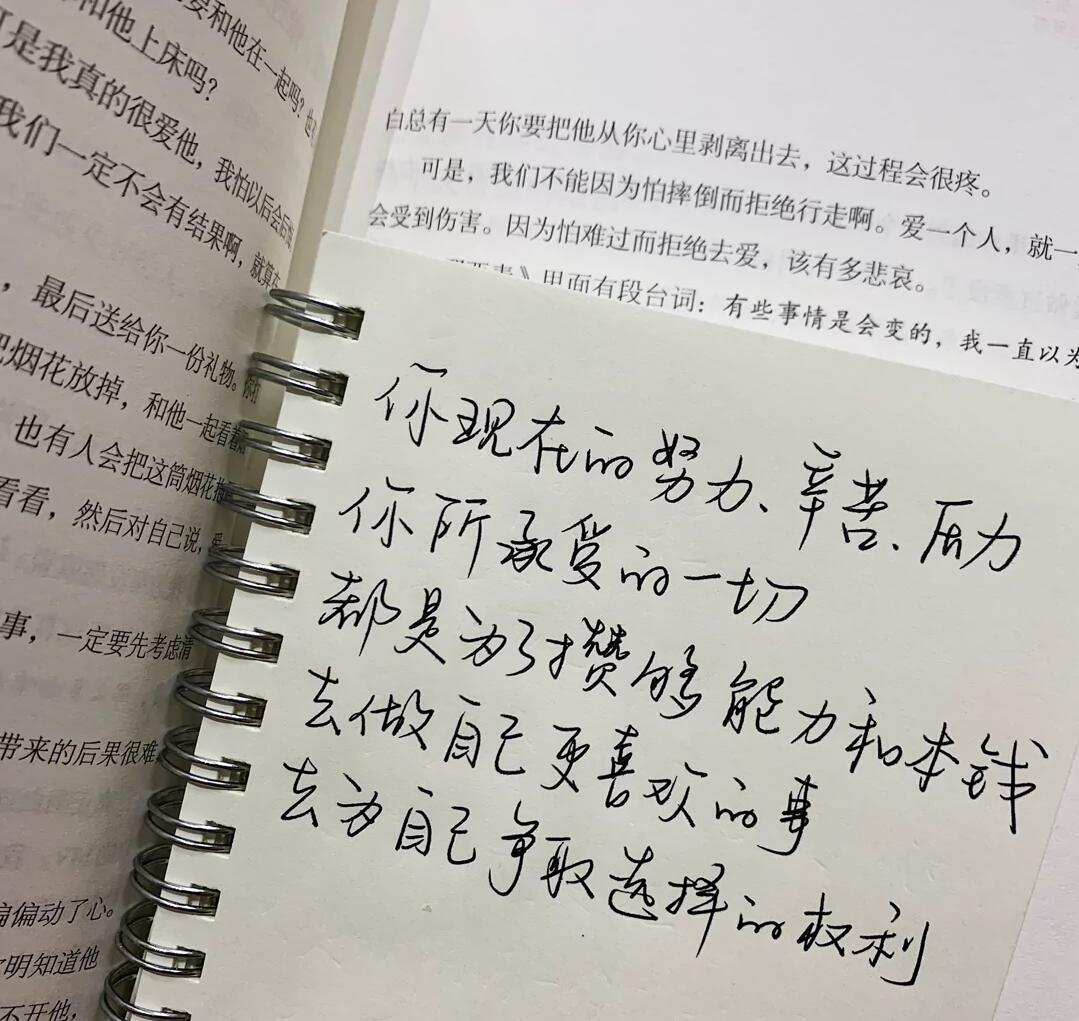 要和他在一起吗？
和他上床吗？
可是我真的很爱他，我怕以后会后悔
我们一定不会有结果啊，就算在
，最后送给你一份礼物。
把烟花放掉，和他一起看着
也有人会把这筒烟花
看看，然后对自己说，
事，一定要先考虑清
带来的后果很难
偏偏动了心。
明知道他
不开他，
白总有一天你要把他从你心里剥离出去，这过程会很疼。
可是，我们不能因为怕摔倒而拒绝行走啊。爱一个人，就一
会受到伤害。因为怕难过而拒绝去爱，该有多悲哀。
》里面有段台词：有些事情是会变的，我一直以为
你现在的努力、辛苦、压力
你所承受的一切
都是为了攒够能力和本钱
去做自己更喜欢的事
去为自己争取选择的权利